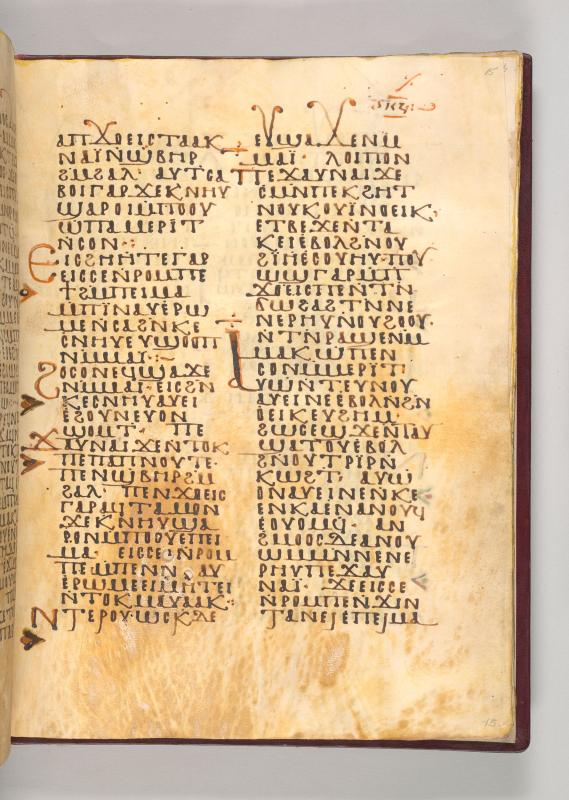 ⲁⲡϪⲟⲉⲓⲥⲧⲁⲁⲕ
ⲛⲁⲓ̈ⲛ̄ϣⲃⲏⲣ
ϩⲙ̄ϩⲁⲗ· ⲁⲩⲧⲥⲁ
ⲃⲟⲓⲅⲁⲣ·ϫⲉⲕⲛⲏⲩ
ϣⲁⲣⲟⲓⲙ̄ⲡⲟⲟⲩ
ⲱ̄ⲡⲁⲙⲉⲣⲓⲧ
ⲛ̄ⲥⲟⲛ·
Ⲉⲓⲥϩⲏⲏⲧⲉⲅⲁⲣ
ⲉⲓⲥⲝⲉⲛ̄ⲣⲟⲙⲡⲉ
ϯϩⲙ̄ⲡⲉⲓⲙⲁ
ⲙ̄ⲡⲓⲛⲁⲩⲉⲣⲱ
ⲙⲉⲛ̄ⲥⲁϩⲛ̄ⲕⲉ
ⲥⲛⲏⲩⲉⲩϣⲟⲟⲡ
ⲛⲙ̄ⲙⲁⲓ̈·
Ϩⲟⲥⲟⲛⲉϥϣⲁϫⲉ
ⲛⲙ̄ⲙⲁⲓ̈·ⲉⲓⲥϩⲛ̄
ⲕⲉⲥⲛⲏⲩⲁⲩⲉⲓ
ⲉϩⲟⲩⲛⲉⲩⲟⲛ
ϣⲟⲙⲧ· ⲡⲉ
Ϫⲁⲩⲛⲁⲓ̈·ϫⲉⲛ̄ⲧⲟⲕ
ⲡⲉⲡⲁⲡⲛⲟⲩⲧⲉ·
ⲡⲉⲛϣⲃⲏⲣϩⲙ̄
ϩⲁⲗ· ⲡⲉⲛϫⲟⲉⲓⲥ
ⲅⲁⲣⲁϥⲧⲁⲙⲟⲛ
ϫⲉⲕⲛⲏⲩϣⲁ
ⲣⲟⲛⲙ̄ⲡⲟⲟⲩⲉⲡⲉⲓ
ⲙⲁ· ⲉⲓⲥⲝⲉⲛ̄ⲣⲟⲙ
ⲡⲉⲙ̄ⲡⲉⲛⲛⲁⲩ
ⲉⲣⲱⲙⲉⲉⲓⲙⲏⲧⲉⲓ
ⲛ̄ⲧⲟⲕⲙⲁⲩⲁⲁⲕ·
Ⲛⲧⲉⲣⲟⲩⲱⲥⲕⲇⲉ
ⲉⲩϣⲁϪⲉⲛⲙ̄
ⲙⲁⲓ̈· ⲗⲟⲓⲡⲟⲛ
ⲡⲉϫⲁⲩⲛⲁⲓ̈ϫⲉ
ϭⲙ̄ⲡⲉⲕϩⲏⲧ
ⲛⲟⲩⲕⲟⲩⲓ̈ⲛⲟⲉⲓⲕ,
ⲉⲧⲃⲉϫⲉⲛ̄ⲧⲁ
ⲕⲉⲓⲉⲃⲟⲗϩⲛ̄ⲟⲩ
ϩⲓⲏ̄ⲉⲥⲟⲩⲏⲩ·ⲡⲟⲩ
ⲱϣⲅⲁⲣⲙ̄ⲡ
ϫⲟⲉⲓⲥⲡⲉⲛⲧⲛ̄
ϭⲱϩⲁϩⲧⲛⲛⲉ
ⲛⲉⲣⲏⲩⲛ̄ⲟⲩϩⲟⲟⲩ·
ⲛ̄ⲧⲛ̄ⲣⲁϣⲉⲛⲙ̄
ⲙⲁⲕⲱ̄ⲡⲉⲛ
ⲥⲟⲛⲙ̄ⲙⲉⲣⲓⲧ·
ⲩϣⲛ̄ⲧⲉⲩⲛⲟⲩ
ⲁⲩⲉⲓⲛⲉⲉⲃⲟⲗⲛ̄ϩⲛ̄
ⲟⲉⲓⲕⲉⲩϩⲏⲙ·
ϩⲱⲥⲉϣϫⲉⲛⲧⲁⲩ
ϣⲁⲧⲟⲩⲉⲃⲟⲗ
ϩⲛⲟⲩⲧⲣⲓⲣⲛ̄
ⲕⲱϩⲧ· ⲁⲩⲱ
ⲟⲛⲁⲩⲉⲓⲛⲉⲛ̄ⲕⲉ
ⲉⲛⲕⲁⲉⲛⲁⲛⲟⲩϥ
ⲉⲟⲩⲟⲙϥ· ⲁⲛ
ϩⲙⲟⲟⲥϭⲉⲁⲛⲟⲩ
ⲱⲙⲙⲛ̄ⲛⲉⲛⲉ
ⲣⲏⲩⲡⲉϫⲁⲩ
ⲛⲁⲓ̈· ϫⲉⲉⲓⲥⲝⲉ
ⲛ̄ⲣⲟⲙⲡⲉⲛ̄ϫⲓⲛ
ⲧⲁⲛⲉⲓⲉⲡⲉⲓⲙⲁ
15